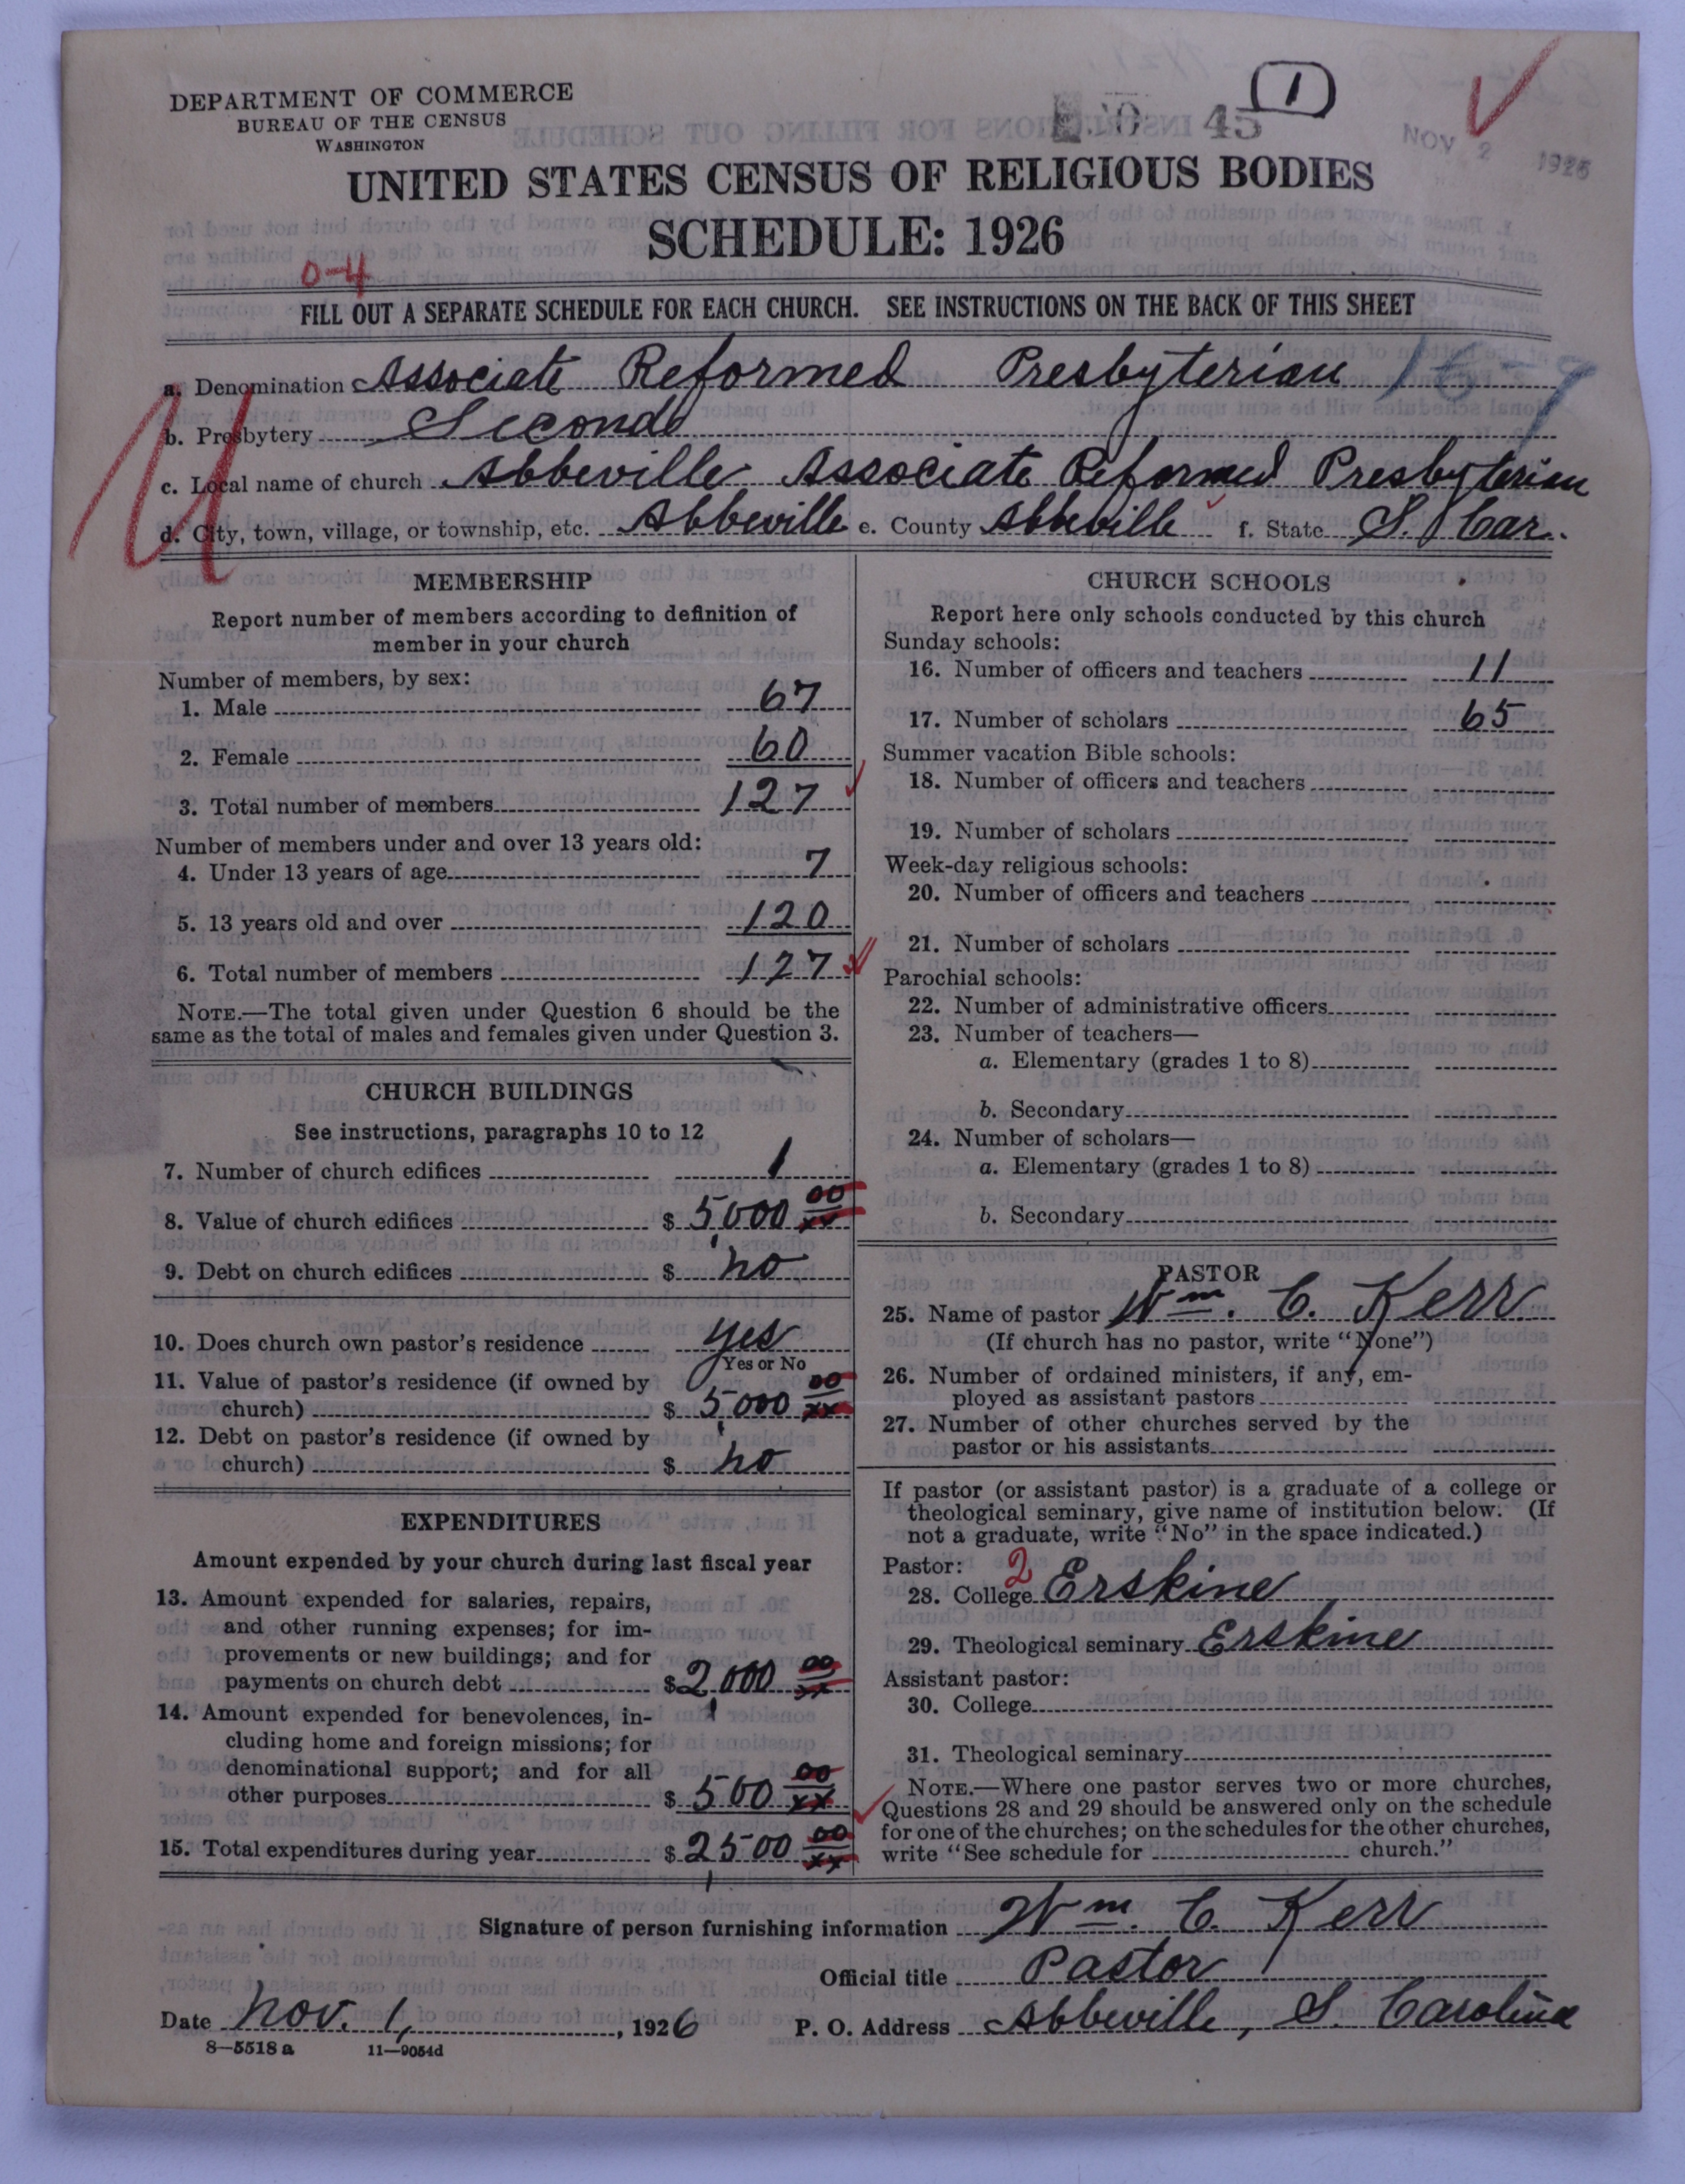 DEPARTMENT OF COMMERCE
BUREAU OF THE CENSUS
WASHINGTON
1
45
NOV 2 1926
UNITED STATES CENSUS OF RELIGIOUS BODIES
SCHEDULE: 1926
0-4
FILL OUT A SEPARATE SCHEDULE FOR EACH CHURCH. SEE INSTRUCTIONS ON THE BACK OF THIS SHEET
a. Denomination Associate Reformed Presbyterian 16-9
b. Presbytery Second
c. Local name of church Abbeville Associate Reformed Presbyterian
d. City, town, village, or township, etc. Abbeville e. County Abbeville f. State S. Car.
MEMBERSHIP
Report number of members according to definition of
member in your church
Number of members, by sex:
1. Male 67
2. Female 60
3. Total number of members 127
Number of members under and over 13 years old:
4. Under 13 years of age 7
5. 13 years old and over 120
6. Total number of members 127
NOTE.—The total given under Question 6 should be the
same as the total of males and females given under Question 3.
CHURCH BUILDINGS
See instructions, paragraphs 10 to 12
7. Number of church edifices 1
8. Value of church edifices $ 5,000 00/xx
9. Debt on church edifices $ no
10. Does church own pastor's residence yes
Yes or No
11. Value of pastor's residence (if owned by
church) $ 5,000 00/xx
12. Debt on pastor's residence (if owned by
church) $ no
EXPENDITURES
Amount expended by your church during last fiscal year
13. Amount expended for salaries, repairs,
and other running expenses; for im-
provements or new buildings; and for
payments on church debt $ 2,000 00/xx
14. Amount expended for benevolences, in-
cluding home and foreign missions; for
denominational support; and for all
other purposes $ 500 00/xx
15. Total expenditures during year $ 2,500 00/xx
CHURCH SCHOOLS
Report here only schools conducted by this church
Sunday schools:
16. Number of officers and teachers 11
17. Number of scholars 65
Summer vacation Bible schools:
18. Number of officers and teachers
19. Number of scholars
Week-day religious schools:
20. Number of officers and teachers
21. Number of scholars
Parochial schools:
22. Number of administrative officers
23. Number of teachers—
a. Elementary (grades 1 to 8)
b. Secondary
24. Number of scholars—
a. Elementary (grades 1 to 8)
b. Secondary
PASTOR
25. Name of pastor Wm. C. Kerr
(If church has no pastor, write "None")
26. Number of ordained ministers, if any, em-
ployed as assistant pastors
27. Number of other churches served by the
pastor or his assistants
If pastor (or assistant pastor) is a graduate of a college or
theological seminary, give name of institution below. (If
not a graduate, write "No" in the space indicated.)
Pastor: 2
28. College Erskine
29. Theological seminary Erskine
Assistant pastor:
30. College
31. Theological seminary
NOTE.—Where one pastor serves two or more churches,
Questions 28 and 29 should be answered only on the schedule
for one of the churches; on the schedules for the other churches,
write "See schedule for church."
Signature of person furnishing information Wm. C. Kerr
Official title Pastor
Date Nov. 1, 1926 P. O. Address Abbeville, S. Carolina
8—5518 a 11—9054d